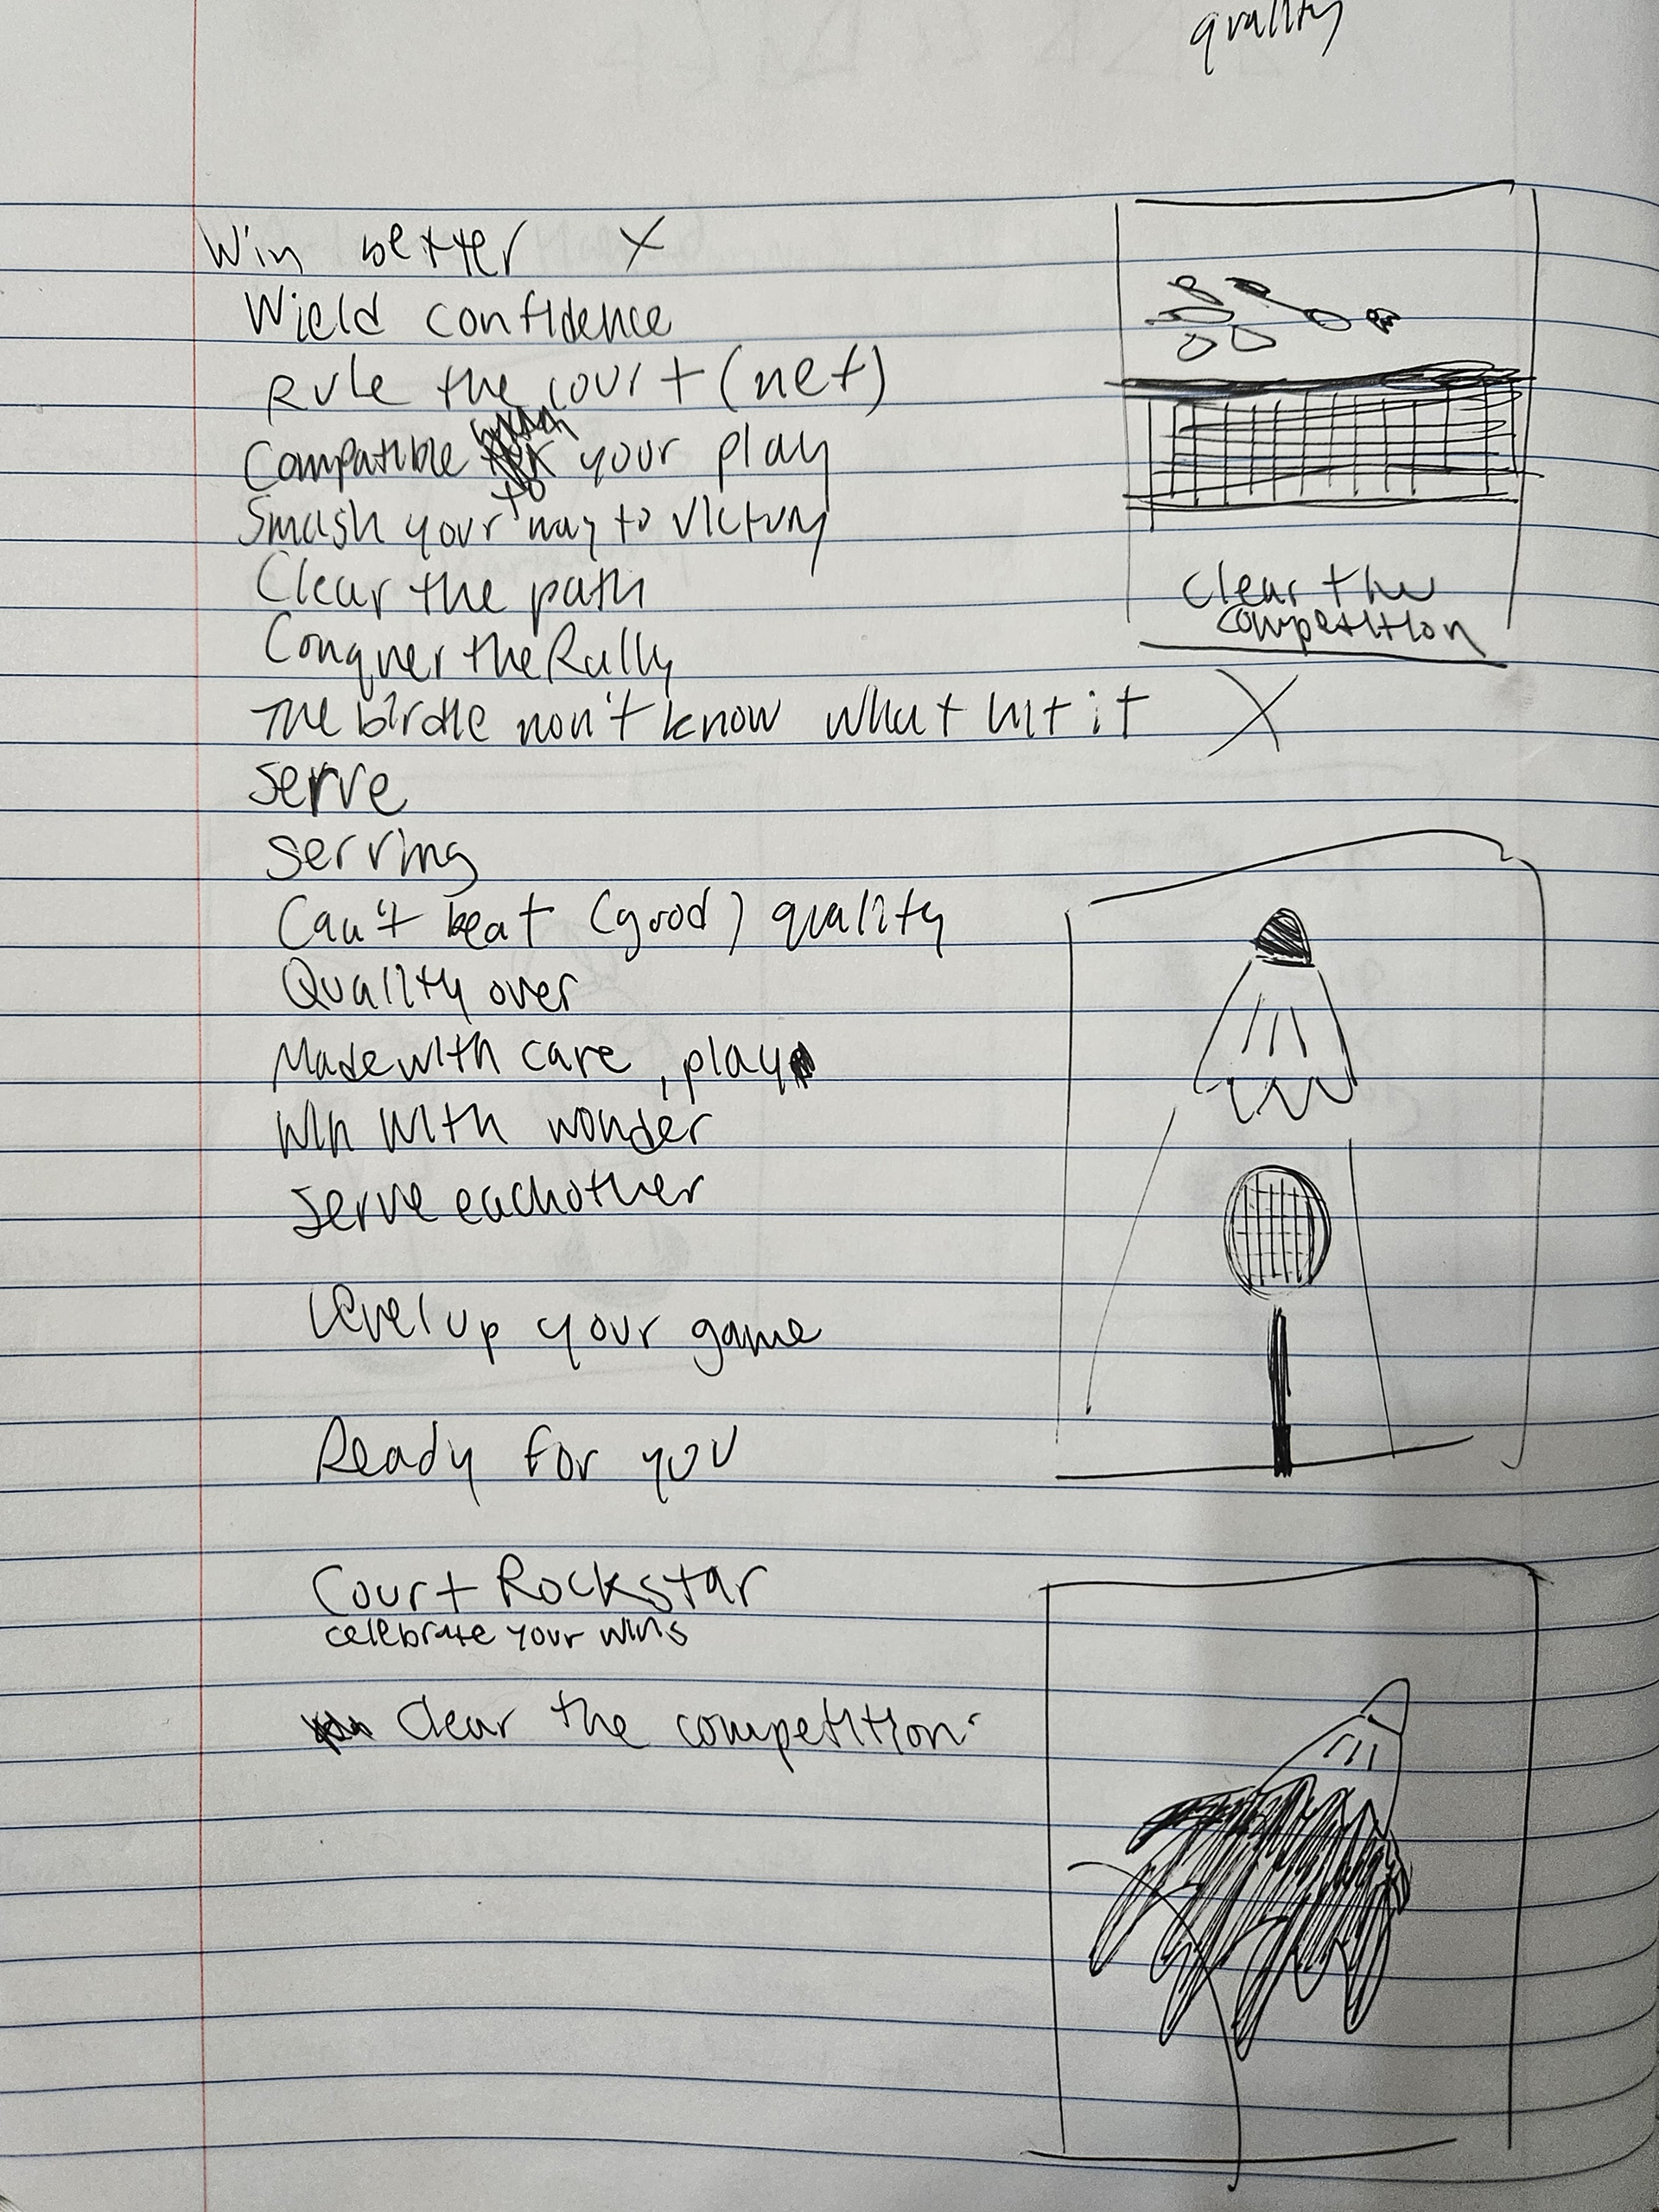 quality
Win better X
Wield confidence
Rule the court (net)
Compatible to your play
Smash your way to victory
Clear the path
Conquer the Rally
The birdie won't know what hit it X
Serve
Serving
Can't beat (good) quality
Quality over
Made with care, play
Win with wonder
Serve eachother
Level up your game
Ready for you
Court Rockstar
celebrate your wins
Clear the competition
Clear the
competition